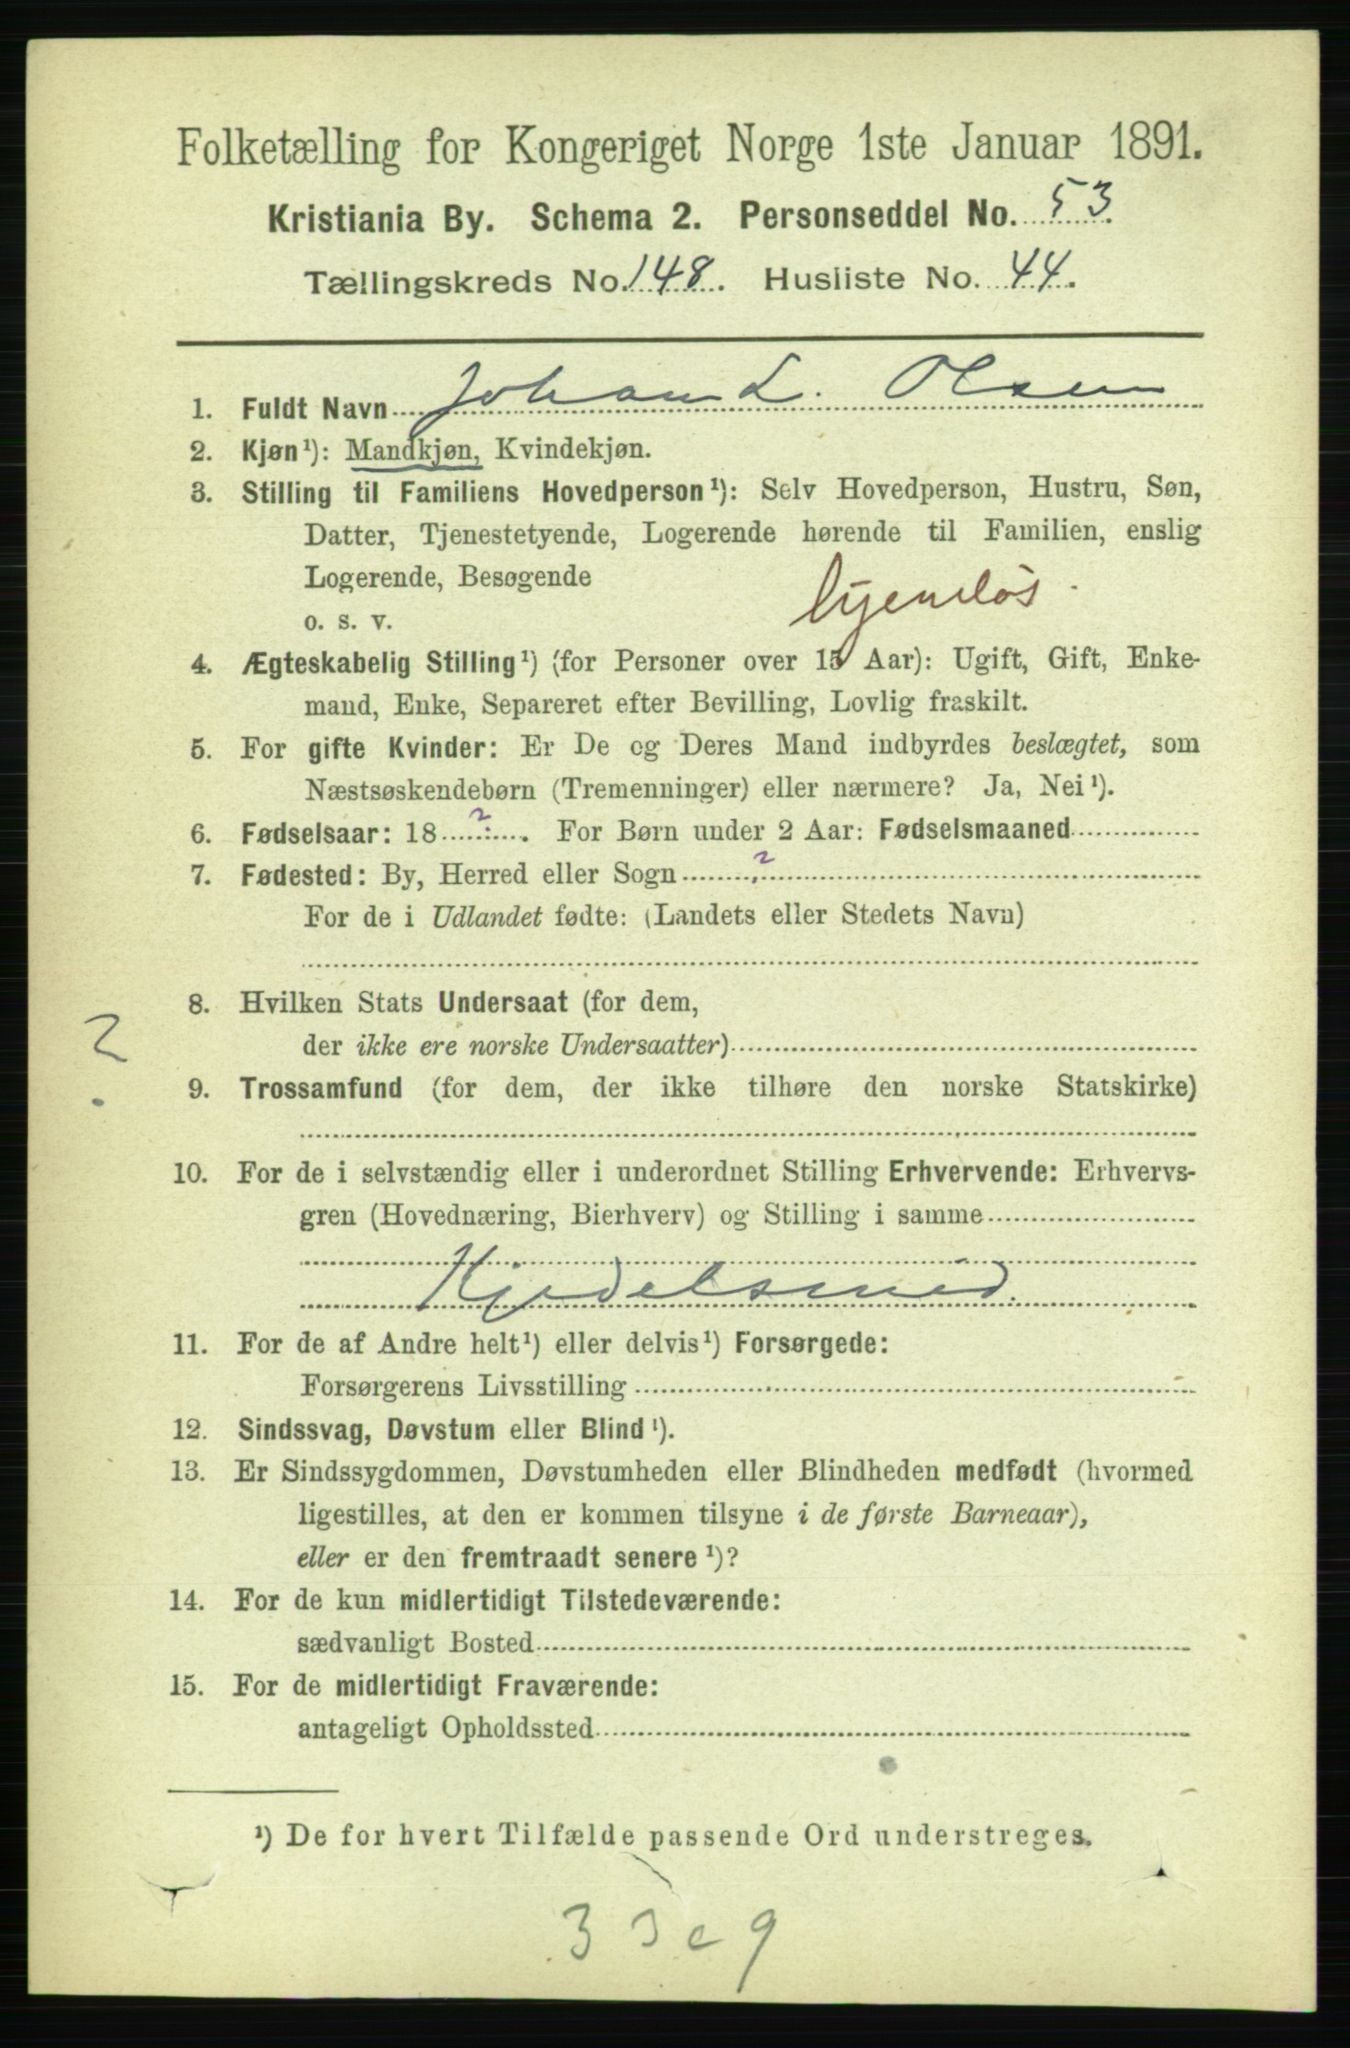 Folketælling for Kongeriget Norge 1ste Januar 1891.
Kristiania By. Schema 2. Personseddel No. 53.
Tællingskreds No. 148. Husliste No. 44.
1. Fuldt Navn Johan L. Olsen
2. Kjøn¹): Mandkjøn, Kvindekjøn.
3. Stilling til Familiens Hovedperson¹): Selv Hovedperson, Hustru, Søn,
Datter, Tjenestetyende, Logerende hørende til Familien, enslig
Logerende, Besøgende
o. s. v. hjemløs.
4. Ægteskabelig Stilling¹) (for Personer over 15 Aar): Ugift, Gift, Enke-
mand, Enke, Separeret efter Bevilling, Lovlig fraskilt.
5. For gifte Kvinder: Er De og Deres Mand indbyrdes beslægtet, som
Næstsøskendebørn (Tremenninger) eller nærmere? Ja, Nei¹).
6. Fødselsaar: 18 ? . For Børn under 2 Aar: Fødselsmaaned
7. Fødested: By, Herred eller Sogn ?
For de i Udlandet fødte: (Landets eller Stedets Navn)
8. Hvilken Stats Undersaat (for dem,
der ikke ere norske Undersaatter)
?
9. Trossamfund (for dem, der ikke tilhøre den norske Statskirke)
10. For de i selvstændig eller i underordnet Stilling Erhvervende: Erhvervs-
gren (Hovednæring, Bierhverv) og Stilling i samme
Kjedelsmed.
11. For de af Andre helt¹) eller delvis¹) Forsørgede:
Forsørgerens Livsstilling
12. Sindssvag, Døvstum eller Blind¹).
13. Er Sindssygdommen, Døvstumheden eller Blindheden medfødt (hvormed
ligestilles, at den er kommen tilsyne i de første Barneaar),
eller er den fremtraadt senere¹)?
14. For de kun midlertidigt Tilstedeværende:
sædvanligt Bosted
15. For de midlertidigt Fraværende:
antageligt Opholdssted
¹) De for hvert Tilfælde passende Ord understreges.